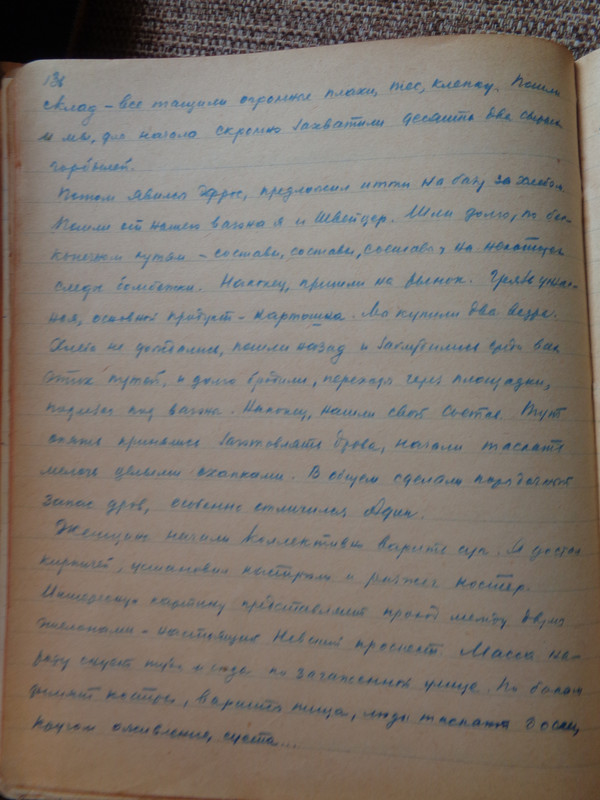 136
склад - все тащили огромные плахи, тес, клепку. Пошли
и мы, для начала скромно захватили десятка два сырых
горбылей.
Потом явился Эфрос, предложил итти на базу за хлебом.
Пошли от нашего вагона я и Швейцер. Шли долго, по бес-
конечным путям - составы, составы, составы и на некоторых
следы бомбежки. Наконец, пришли на рынок. Грязь ужас-
ная, основной продукт - картошка. Мы купили два ведра.
Хлеба не досталось, пошли назад и заблудились среди
этих путей, и долго бродили, переходя через площадки,
подлезая под вагоны. Наконец, нашли свой состав. Тут
опять принялись заготовлять дрова, начали таскать
мелочь целыми охапками. В общем сделали порядочный
запас дров, особенно отличился Адик.
Женщины начали коллективно варить суп. Я достал
кирпичей, установил кастрюли и разжег костер.
Интересную картину представляет проход между двумя
эшелонами - настоящий Невский проспект. Масса на-
роду снует туда и сюда по загаженной улице. По бокам
дымят костры, варится пища, люди
кругом оживление, суета...